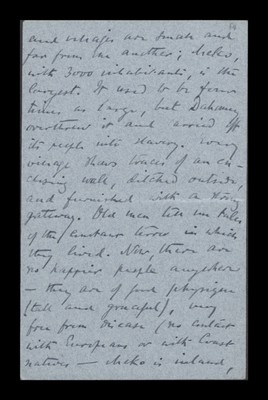 and villages are small and
far from one another; Meko,
with 3000 inhabitants, is the
largest. It used to be four
times as large, but Dahomey
overthrew it and carried off
its people into slavery. Every
village shows traces of an en-
closing wall, ditched outside,
and furnished with a strong
gateway. Old men tell me tales
of the constant terror in which
they lived. Now, there are
no happier people anywhere
— they are of good physique
(tall and graceful), very
free from disease (no contact
with Europeans or with Coast
natives — Meko is inland,